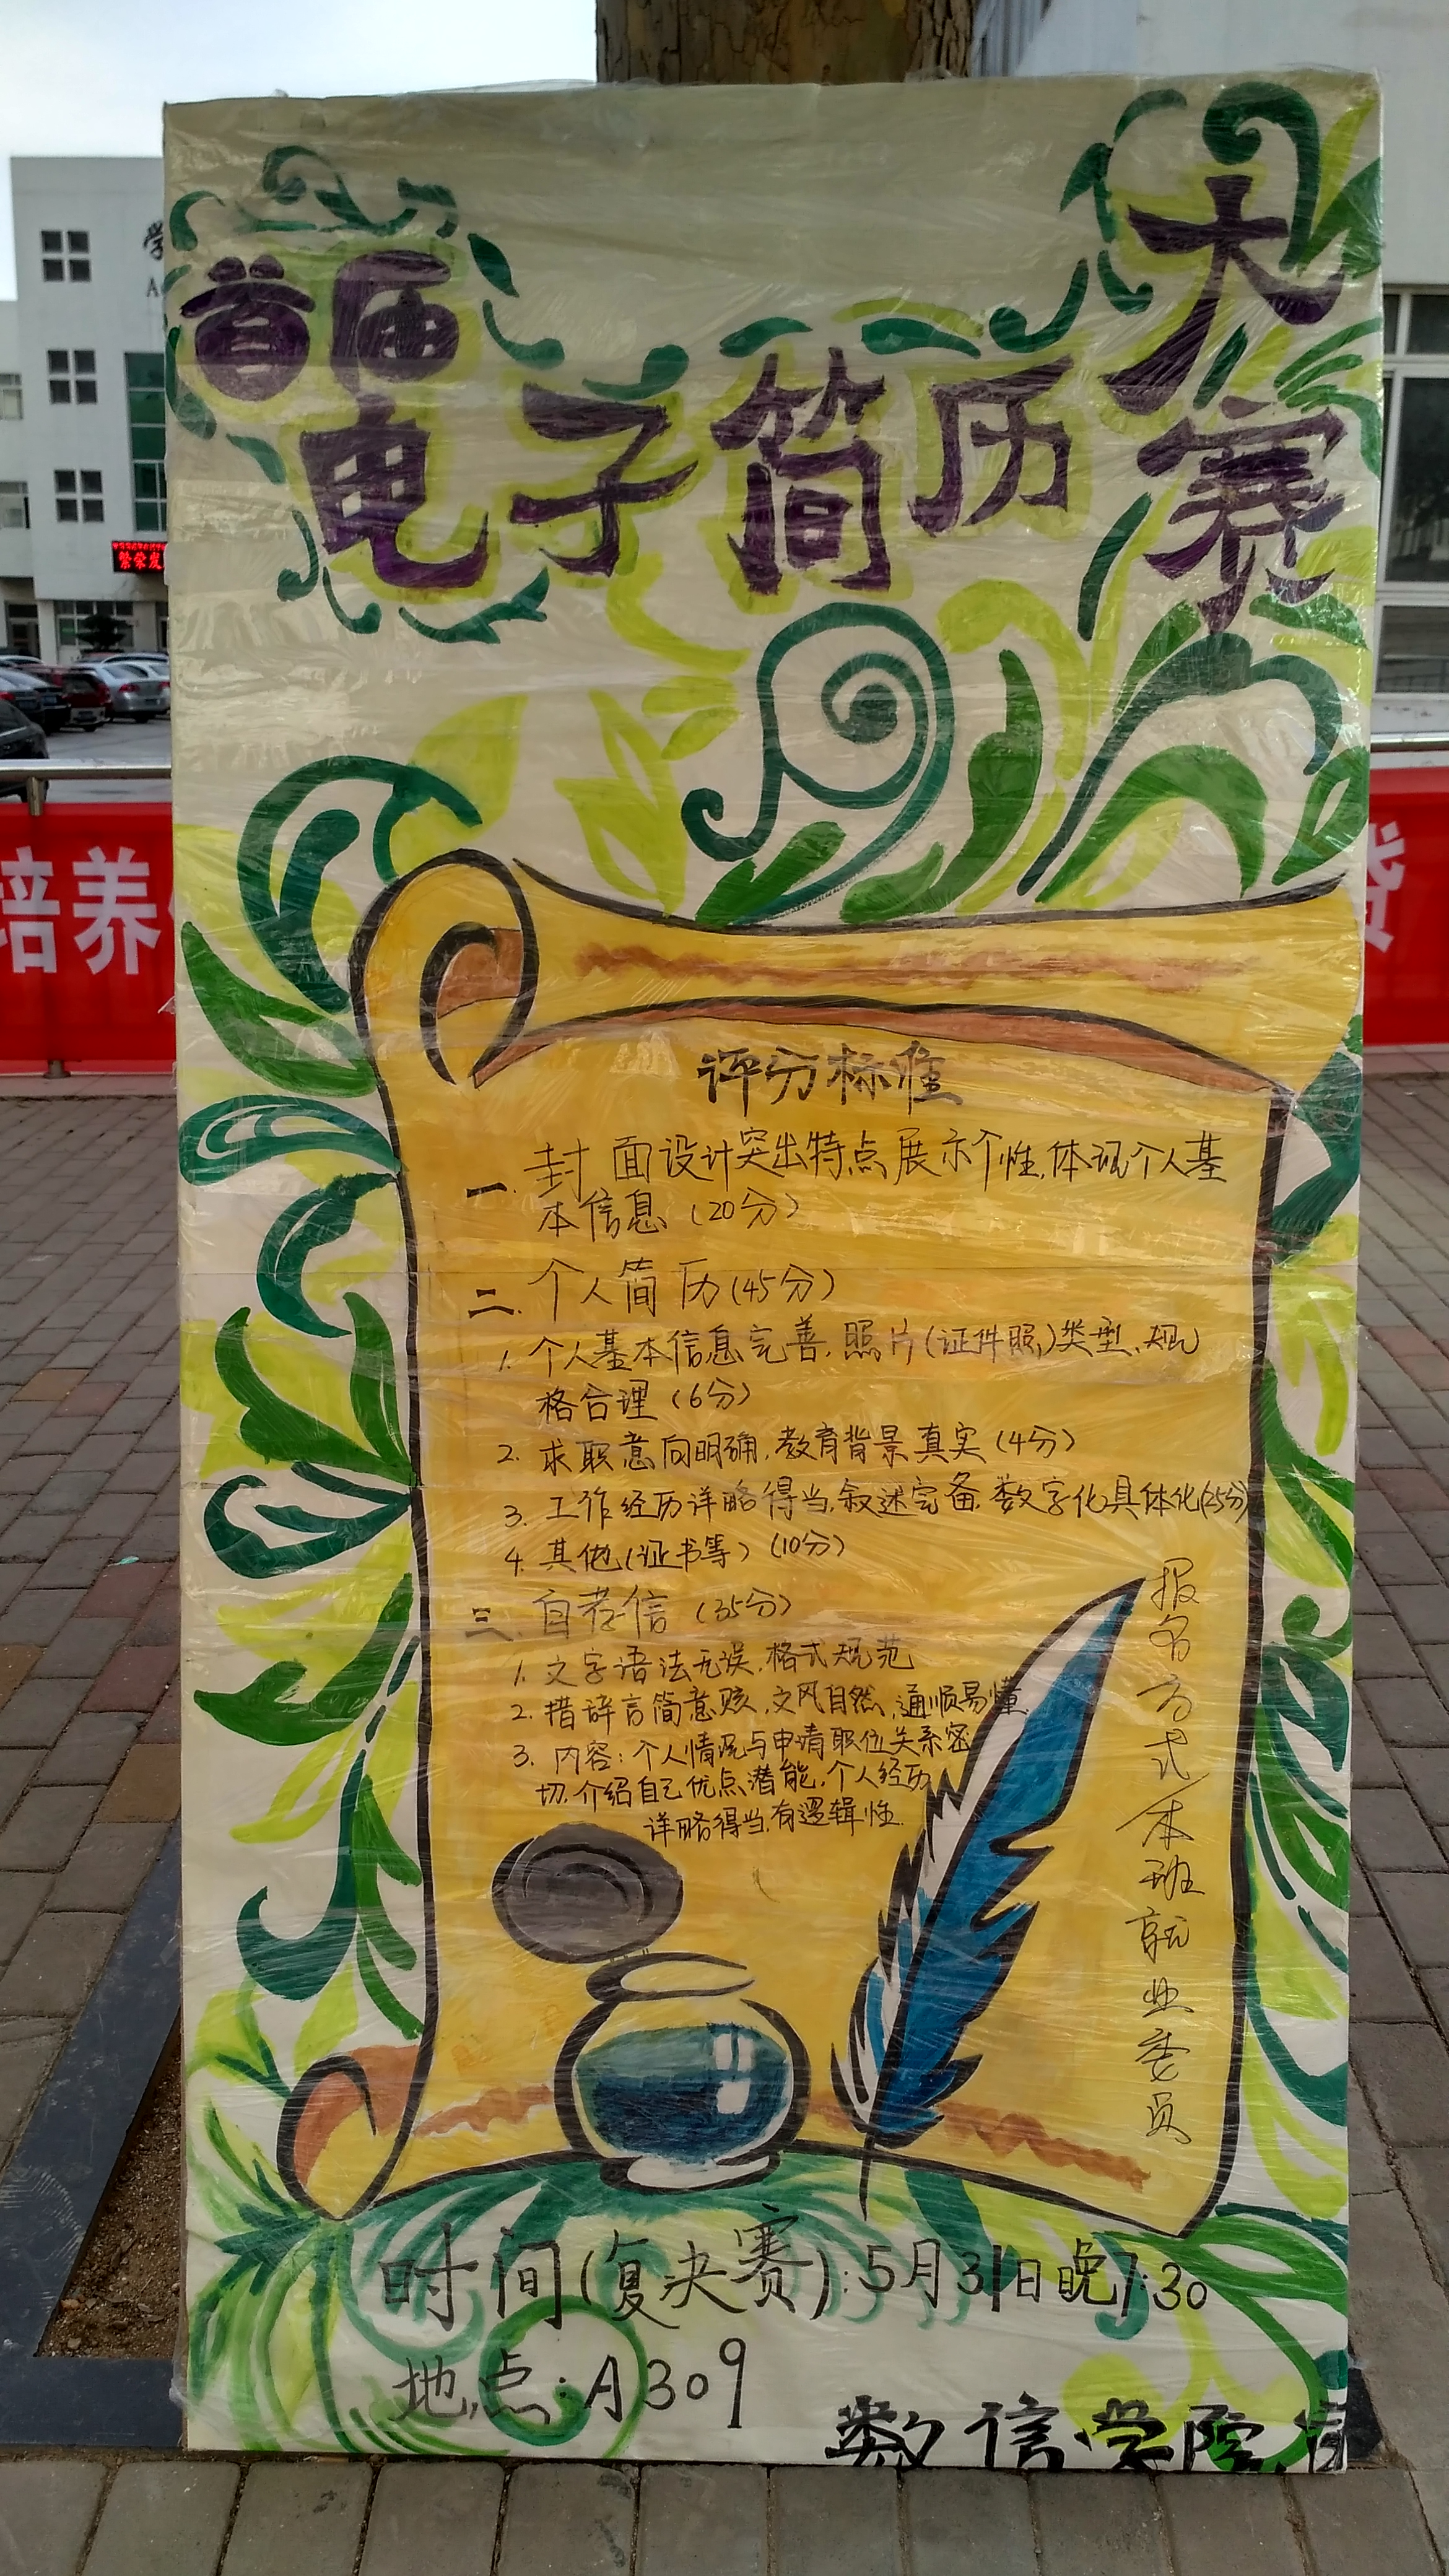 首届
电子简历
大赛
评分标准
一. 封面设计突出特点,展示个性,体现个人基
本信息(20分)
二. 个人简历(45分)
1. 个人基本信息完善,照片(证件照)类型、规
格合理(6分)
2. 求职意向明确,教育背景真实(4分)
3. 工作经历详略得当,叙述完备,数字化具体化(25分)
4. 其他(证书等)(10分)
三. 自荐信(35分)
1. 文字语法无误,格式规范
2. 措辞言简意赅,文风自然,通顺易懂
3. 内容:个人情况与申请职位关系密
切,介绍自己优点潜能,个人经历
详略得当,有逻辑性.
报名方式/本班就业委员
时间(复决赛):5月31日晚7:30
地点:A309
数信学院
培养
学
A